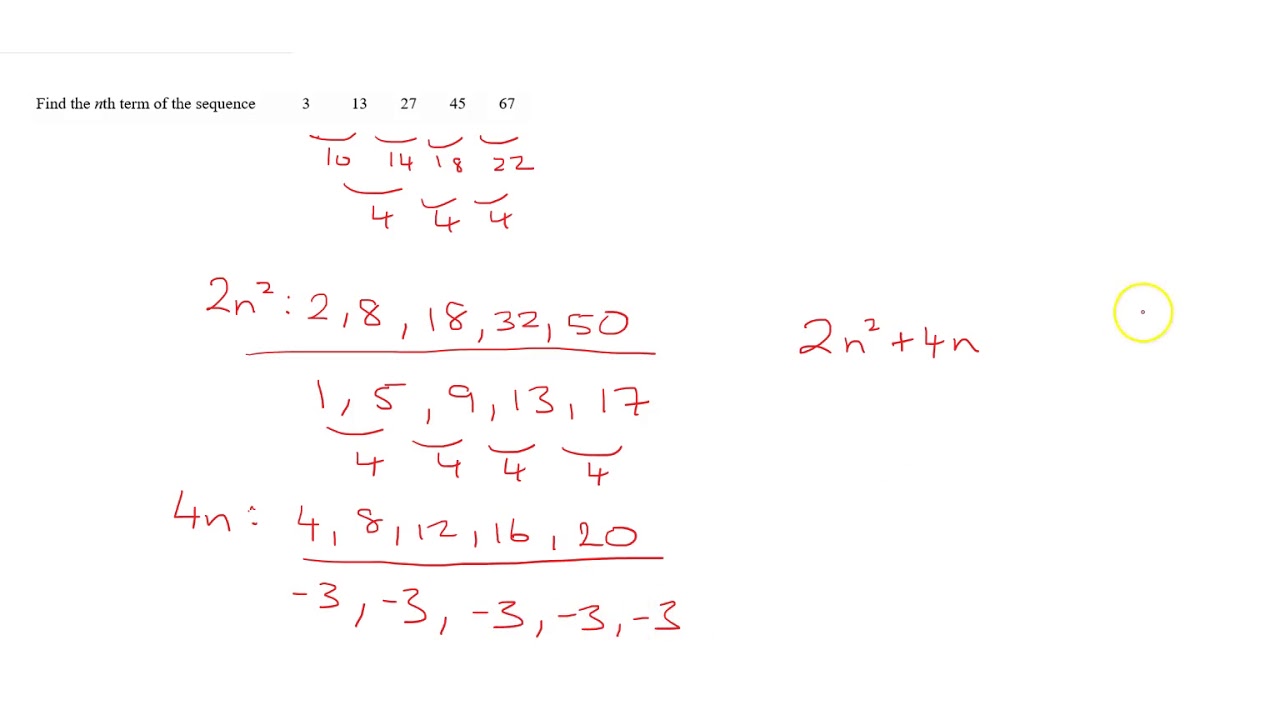 Find the nth term of the sequence 3 13 27 45 67
10 14 18 22
4 4 4
2n² : 2, 8, 18, 32, 50
2n² + 4n
1, 5, 9, 13, 17
4 4 4 4
4n : 4, 8, 12, 16, 20
-3, -3, -3, -3, -3